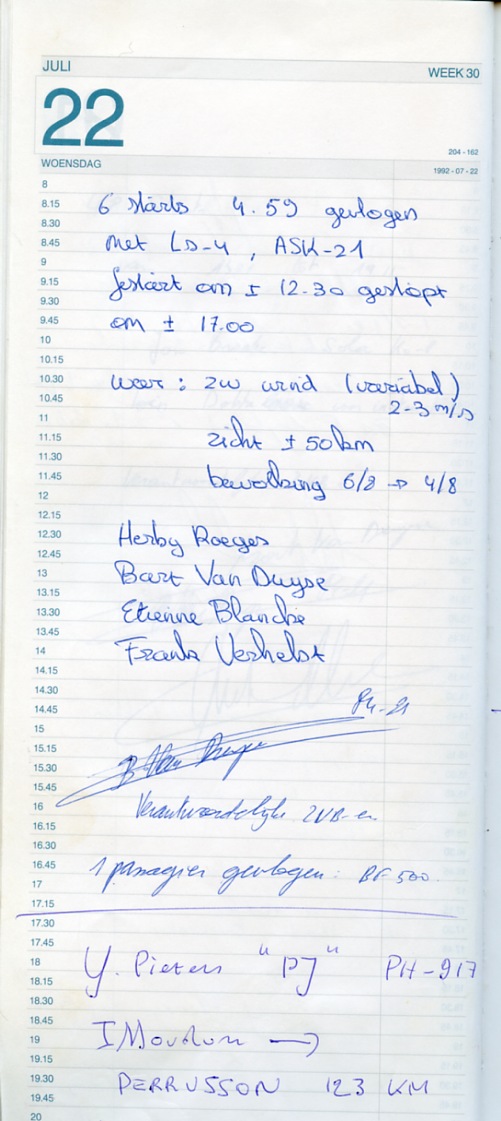 JULI
WEEK 30
22
204 - 162
WOENSDAG
1992 - 07 - 22
8
8.15
6 starts 4.59 gevlogen
8.30
8.45
met LS-4 , ASK-21
9
9.15
gestart om ± 12.30 gestopt
9.30
9.45
om ± 17.00
10
10.15
10.30
weer : ZW wind (variabel)
10.45
2-3 m/s
11
11.15
zicht ± 50 km
11.30
11.45
bewolking 6/8 → 4/8
12
12.15
12.30
Herby Roeges
12.45
13
Bart Van Duyse
13.15
13.30
Etienne Blancke
13.45
14
Frank Verhelst
14.15
14.30
14.45
15
15.15
B Van Duyse
15.30
15.45
16
Verantwoordelijke ZVB-er
16.15
16.30
16.45
1 passagier gevlogen : BF 500.
17
17.15
17.30
17.45
18
Y. Pieters "PJ" PH-917
18.15
18.30
18.45
19
→
19.15
19.30
PERRUSSON 123 KM
19.45
20